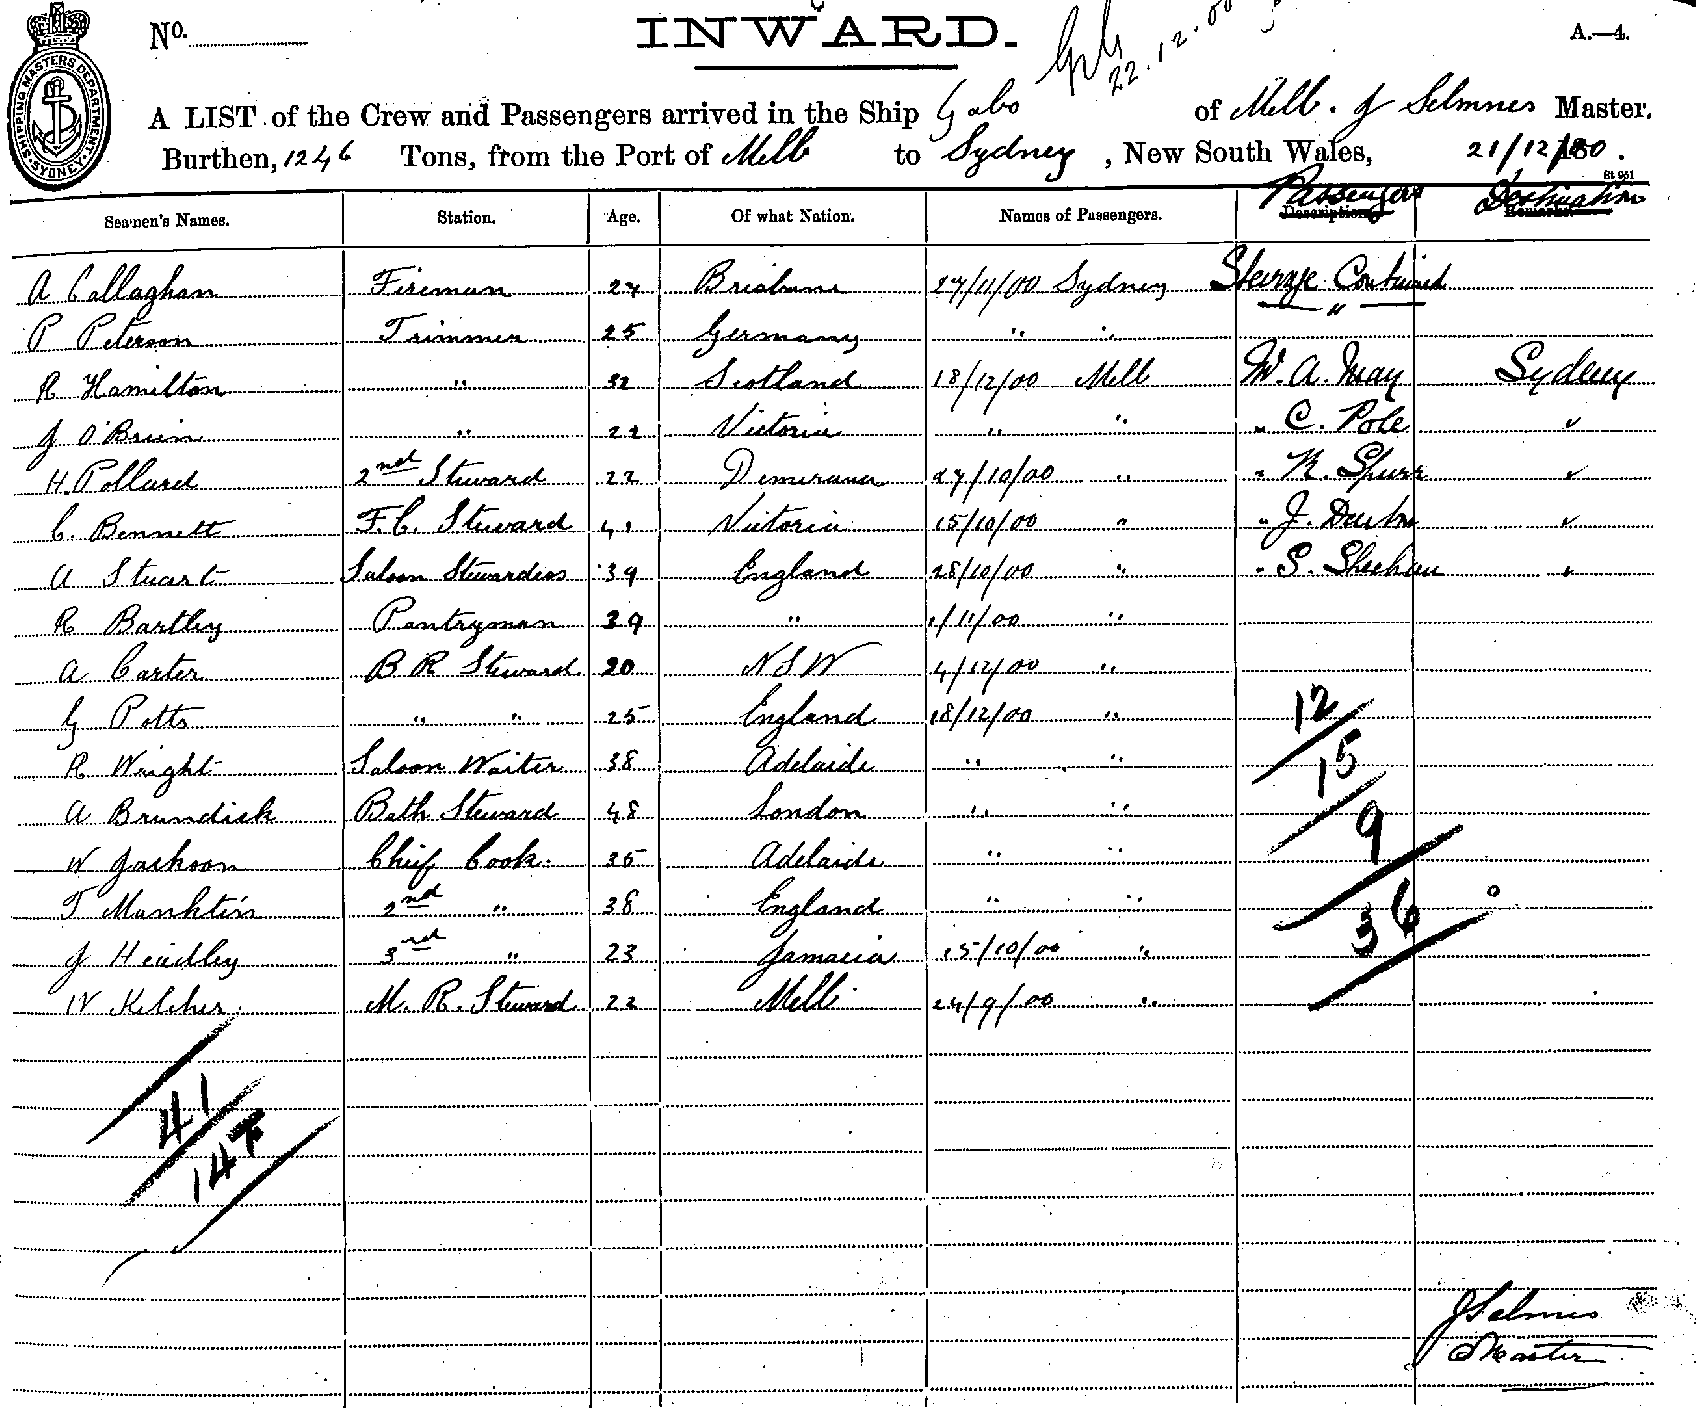 No. INWARD. A.—4.
22.12.00
SHIPPING MASTERS DEPARTMENT SYDNEY
A LIST of the Crew and Passengers arrived in the Ship Gabo of Melb. J Selmnes Master.
Burthen, 1246 Tons, from the Port of Melb to Sydney, New South Wales, 21/12/00.
St 951
Seamen's Names. Station. Age. Of what Nation. Names of Passengers. Passengers Destination
A Callaghan Fireman 27 Brisbane 27/11/00 Sydney Steerage Continued
P Peterson Trimmer 25 Germany " " "
R Hamilton " 32 Scotland 18/12/00 Melb W. A. May Sydney
J O'Brien " 22 Victoria " " " C. Pole "
H. Pollard 2nd Steward 22 Demerara 27/10/00 " " R. Spurr "
C. Bennett F.C. Steward 41 Victoria 15/10/00 " " J. "
A Stuart Saloon Stewardess 39 England 28/10/00 " " S. Sheehan "
R Bartley Pantryman 39 " 1/11/00 "
A Carter B R Steward 20 N S W 4/12/00 "
G Potts " " 25 England 18/12/00 "
R Wright Saloon Waiter 38 Adelaide " "
A Brundick Bath Steward 48 London " "
W Jackson Chief Cook. 35 Adelaide " "
T 2nd " 38 England " "
J Headley 3rd " 23 Jamaica 15/10/00 "
W Kelcher. M. R. Steward 22 Melb 24/9/00 "
12
15
9
36
41
147
J Selmes
Master